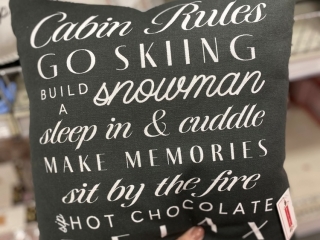 Cabin Rules
GO SKIING
BUILD A snowman
sleep in & cuddle
MAKE MEMORIES
sit by the fire
sip HOT CHOCOLATE